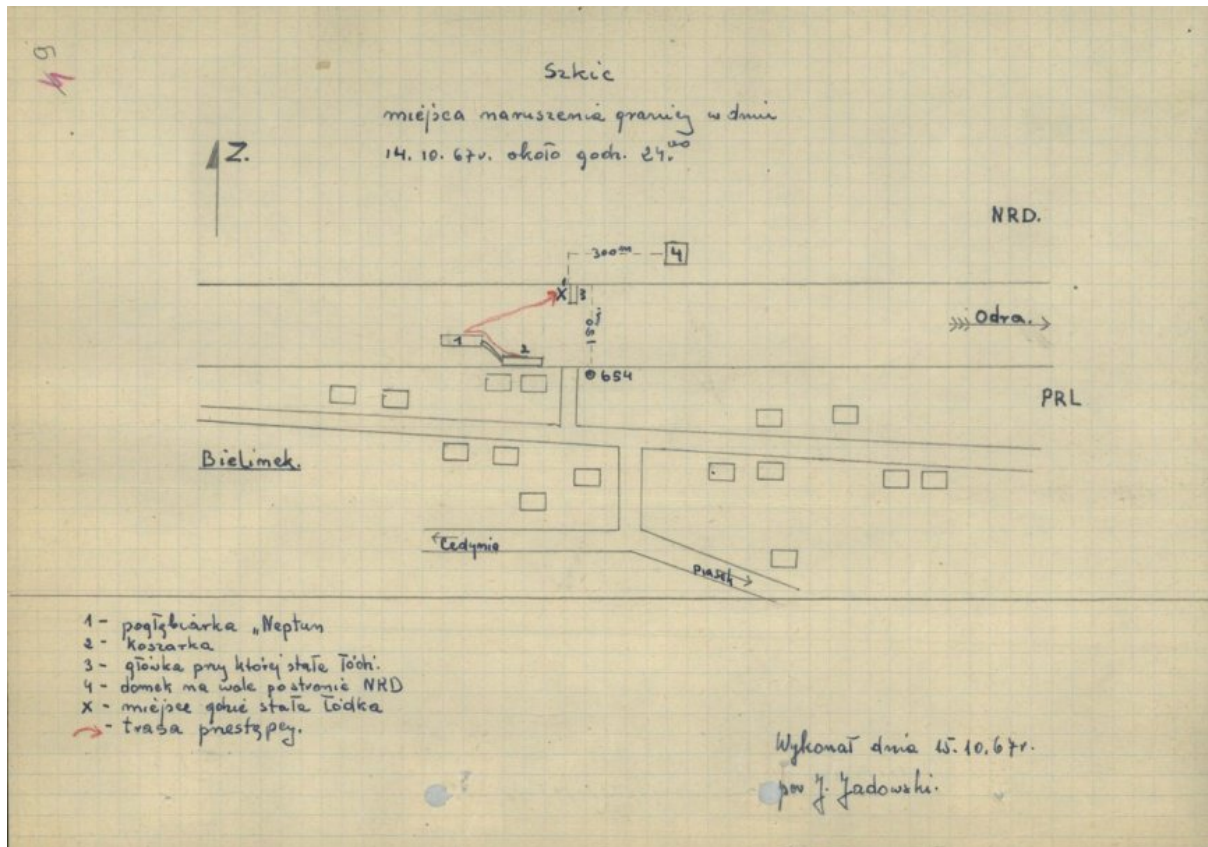 Szkic
miejsca naruszenia granicy w dniu
14.10.67r. około godz. 24.00
Z.
NRD.
300m
4
X 3
150m
Odra.
1
2
654
PRL
Bielinek.
Cedynia
Piasek
1 - pogłębiarka „Neptun
2 - koszarka
3 - główka przy której stała łódź.
4 - domek na wale po stronie NRD
X - miejsce gdzie stała łódka
- trasa przestępcy.
Wykonał dnia 15.10.67r.
por J. Jadowski.